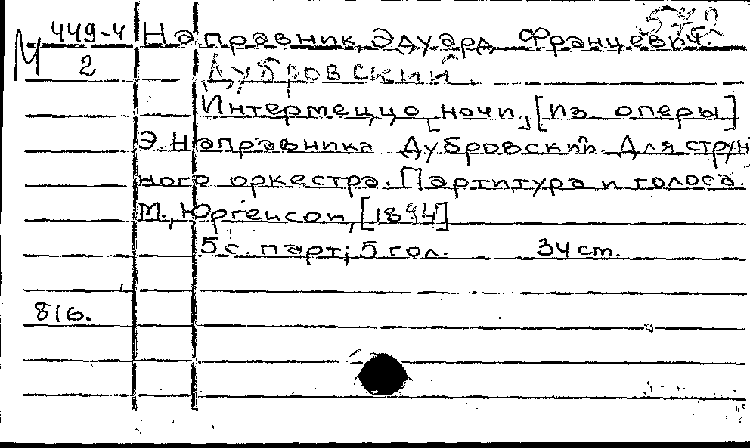 М 449-4
2
Направник, Эдуард Францевич.
Дубровский.
Интермеццо [ночи, [из оперы]
Э. Направника Дубровский. Для струн
ного оркестра. Партитура и голоса.
М., Юргенсон, [1894]
5 с. парт; 5 гол. 34 cm.
816.